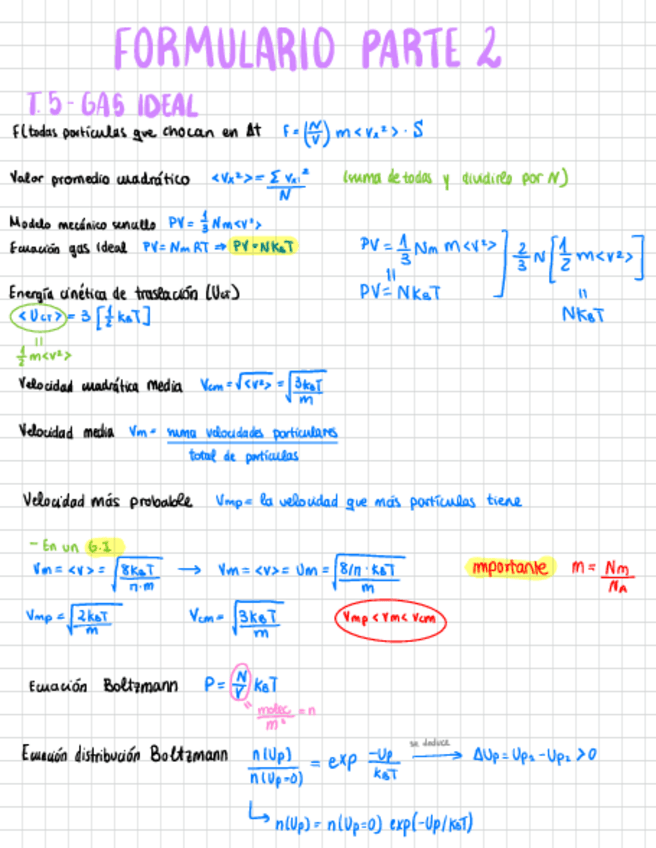 FORMULARIO PARTE 2
T.5- GAS IDEAL
F(todas partículas que chocan en Δt F=(N/V) m<vx²>·S
Valor promedio cuadrático <vx²>= Σvxi²/N (suma de todas y dividirlo por N)
Modelo mecánico sencillo PV= 1/3 Nm<v²>
Ecuación gas ideal PV= Nm RT ⇒ PV=NKBT
PV= 1/3 Nm m<v²> ] 2/3 N [1/2 m<v²>]
" "
PV= NKBT NKBT
Energía cinética de traslación (Ucr)
<Ucr>= 3 [1/2 kBT]
"
1/2 m<v²>
Velocidad cuadrática media Vcm= √<v²> = √3kBT/m
Velocidad media Vm= suma velocidades particulares / total de partículas
Velocidad más probable Vmp= la velocidad que más partículas tiene
- En un G.I
Vm= <v>= √8KBT/π·m → Vm= <v>= Um= √8/π·KBT/m
mportante m= Nm/NA
Vmp= √2KBT/m Vcm= √3KBT/m Vmp < Vm < Vcm
Ecuación Boltzmann P= (N/V) KBT
" molec/m³ = n
Ecuación distribución Boltzmann n(Up)/n(Up=0) = exp -Up/KBT se deduce → ΔUp= Up2 - Up1 >0
↳ n(Up)= n(Up=0) exp(-Up/KBT)